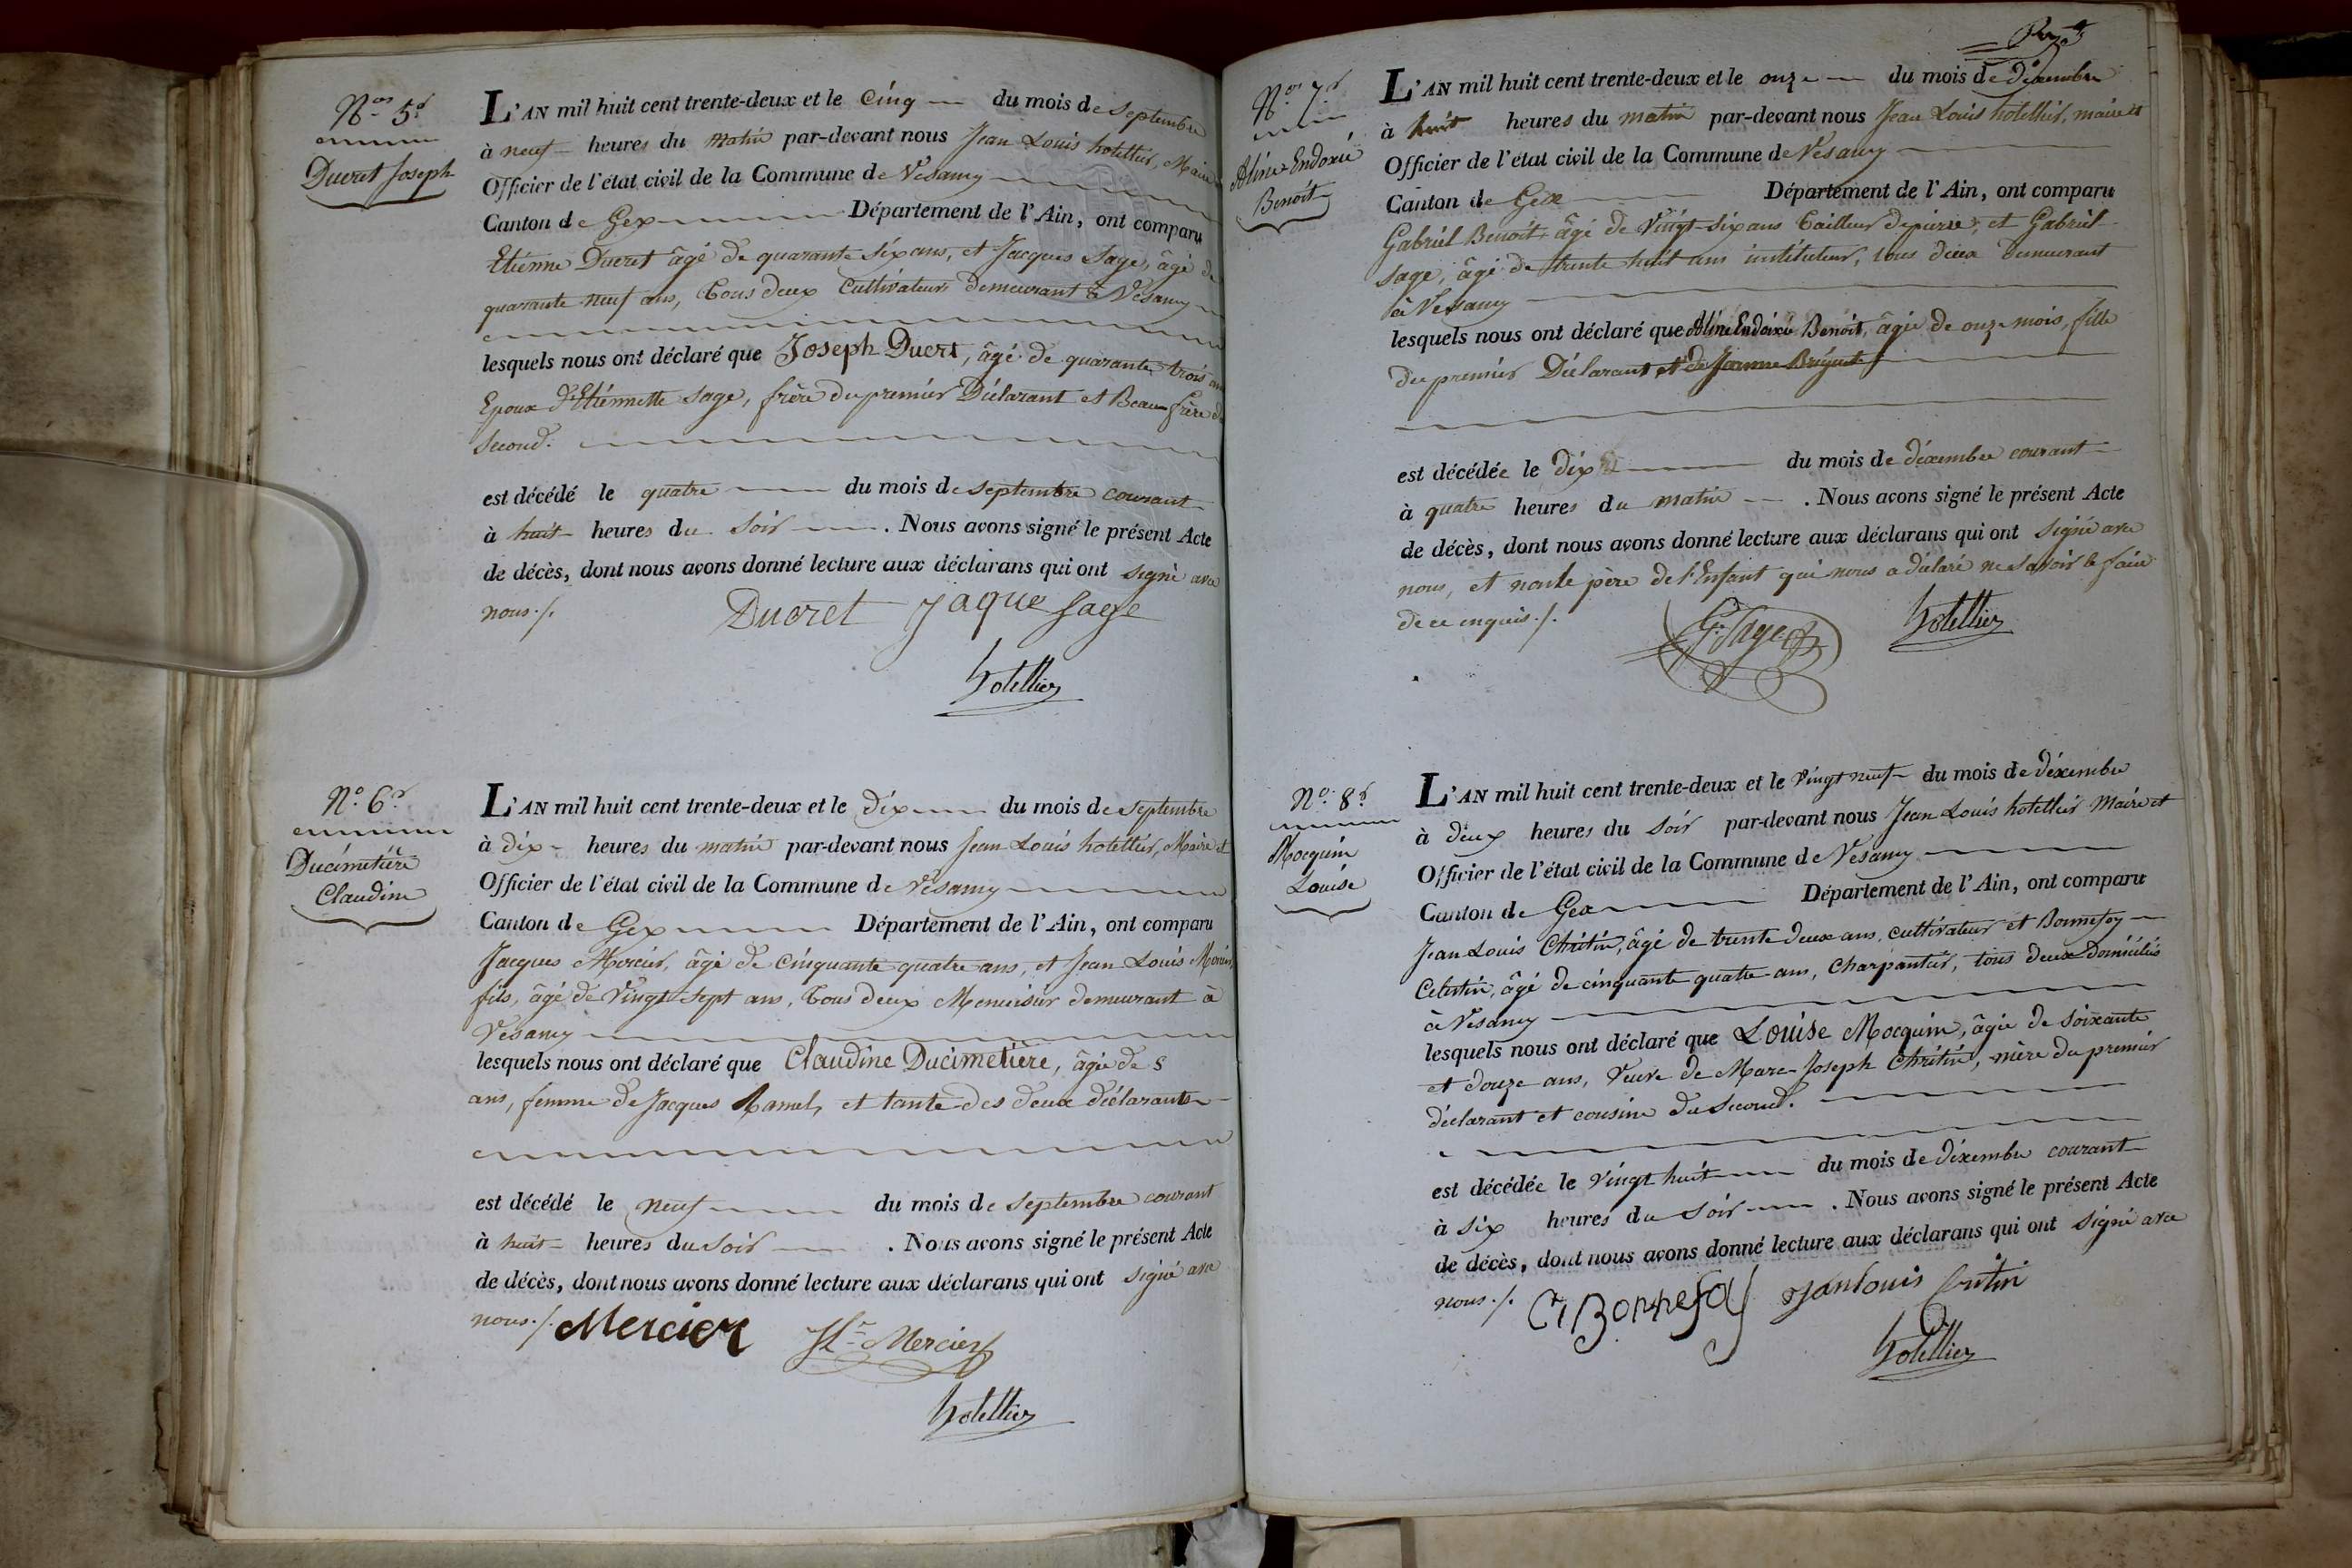 Nos 5d
Ducret Joseph
L'AN mil huit cent trente-deux et le Cinq du mois de septembre
à neuf heures du matin par-devant nous Jean Louis hotellier, Maire
Officier de l'état civil de la Commune de Vesancy
Canton de Gex Département de l'Ain, ont comparu
Etienne Ducret âgé de quarante six ans, et Jacques Sage, âgé de
quarante neuf ans, tous deux Cultivateurs demeurant à Vesancy
lesquels nous ont déclaré que Joseph Ducret, âgé de quarante trois ans
Epoux d'Etiennette Sage, frère du premier Déclarant et Beau frère du
second.
est décédé le quatre du mois de septembre courant
à huit heures du soir . Nous avons signé le présent Acte
de décès, dont nous avons donné lecture aux déclarans qui ont signé avec
nous ./.
Ducret Jaque Sage
hotellier
No 6d
Ducimetière
Claudine
L'AN mil huit cent trente-deux et le dix du mois de septembre
à dix heures du matin par-devant nous Jean Louis hotellier, Maire et
Officier de l'état civil de la Commune de Vesancy
Canton de Gex Département de l'Ain, ont comparu
Jacques Mercier, âgé de Cinquante quatre ans, et Jean Louis Mercier,
fils, âgé de Vingt Sept ans, tous deux Menuisier demeurant à
Vesancy
lesquels nous ont déclaré que Claudine Ducimetière, âgée de s
ans, femme de Jacques Ramel, et tante des deux déclarants
est décédé le neuf du mois de septembre courant
à huit heures du soir . Nous avons signé le présent Acte
de décès, dont nous avons donné lecture aux déclarans qui ont signé avec
nous ./. Mercier JLs Mercier
hotellier
No 7d
Aline Endoxie
Benoit
L'AN mil huit cent trente-deux et le onze du mois de décembre
à huit heures du matin par-devant nous Jean Louis hotellier, maire et
Officier de l'état civil de la Commune de Vesancy
Canton de Gex Département de l'Ain, ont comparu
Gabriel Benoit, âgé de Vingt-six ans tailleur de pierre, et Gabriel
Sage, âgé de trente huit ans instituteur, tous deux demeurant
à Vesancy
lesquels nous ont déclaré que Aline Endoixie Benoit, âgée de onze mois, fille
du premier Déclarant et de Jeanne
est décédée le dix du mois de décembre courant
à quatre heures du matin . Nous avons signé le présent Acte
de décès, dont nous avons donné lecture aux déclarans qui ont signé avec
nous, et non le père de l'Enfant qui nous a déclaré ne savoir le faire
de ce enquis ./.
G. Sage hotellier
No 8d
Mocquin
Louise
L'AN mil huit cent trente-deux et le Vingt neuf du mois de décembre
à deux heures du soir par-devant nous Jean Louis hotellier Maire et
Officier de l'état civil de la Commune de Vesancy
Canton de Gex Département de l'Ain, ont comparu
Jean Louis Chritin, âgé de trente deux ans, cultivateur et Bonnefoy
Celestin, âgé de cinquante quatre ans, Charpantier, tous deux Domiciliés
à Vesancy
lesquels nous ont déclaré que Louise Mocquin, âgée de soixante
et douze ans, Veuve de Marc-Joseph Chritin, mère du premier
déclarant et cousine du second.
est décédée le Vingt huit du mois de décembre courant
à six heures du soir . Nous avons signé le présent Acte
de décès, dont nous avons donné lecture aux déclarans qui ont signé avec
nous ./. Bonnefoy Jan Louis Critin
hotellier